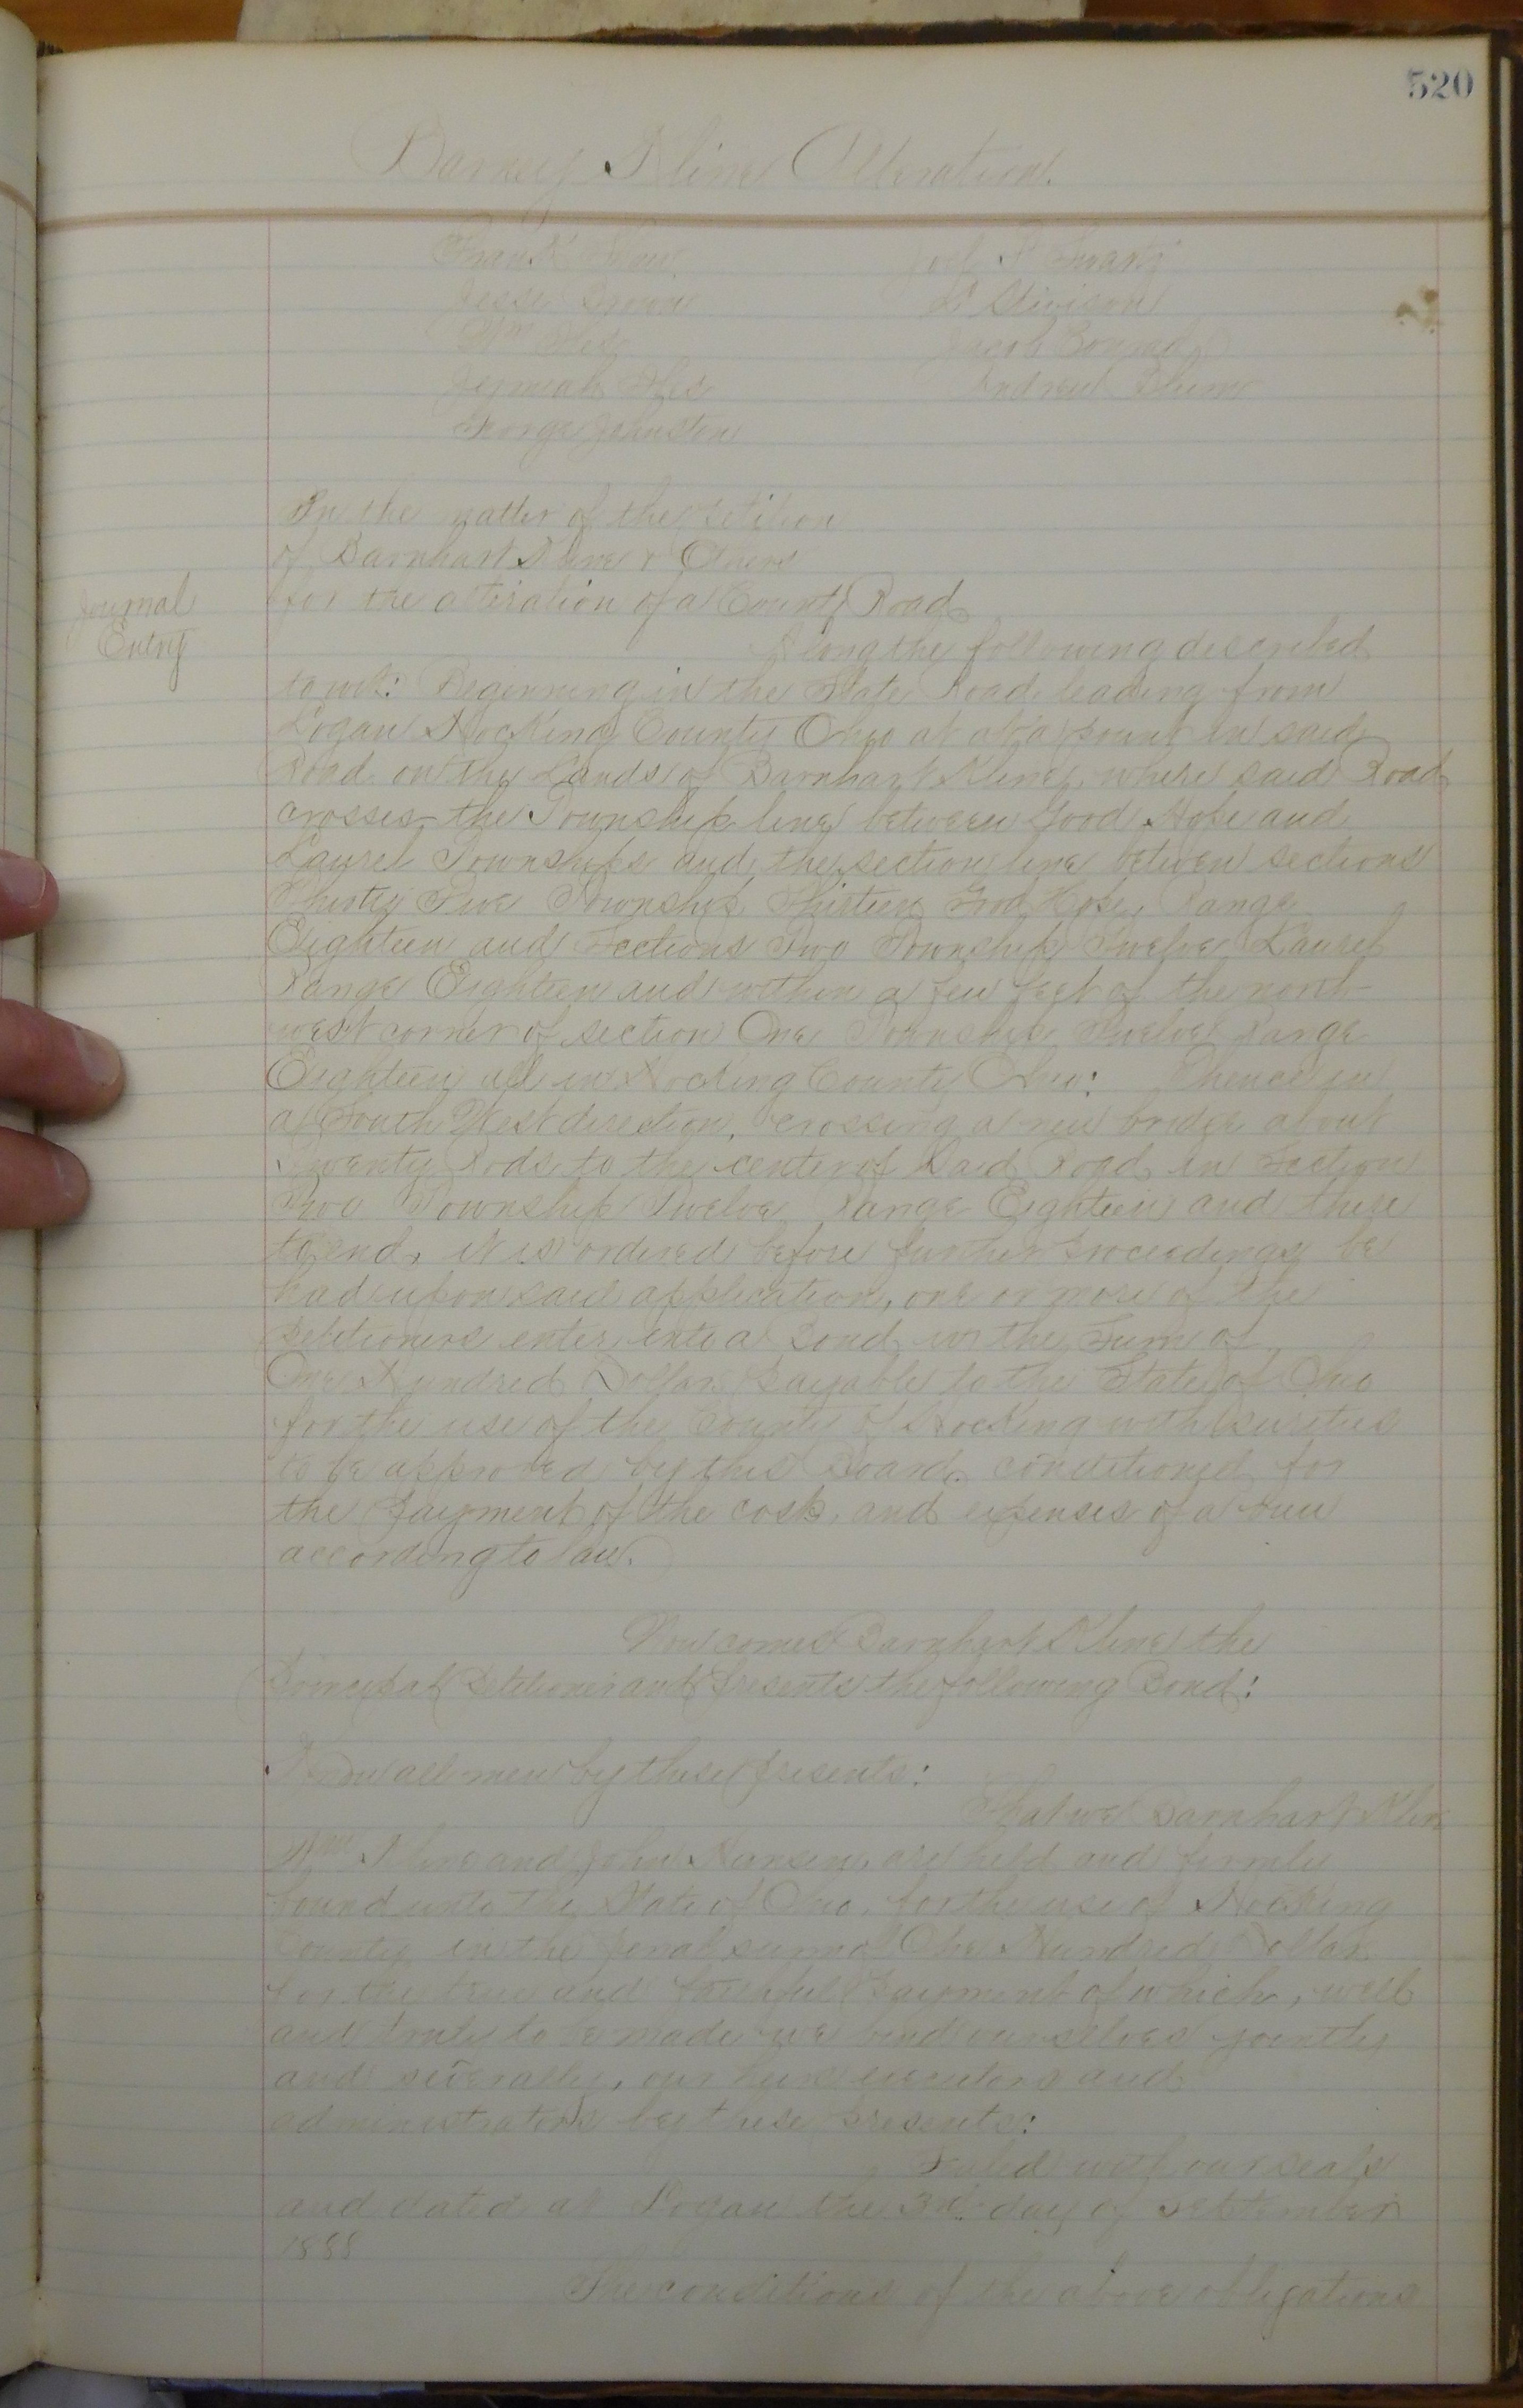 520
Barney Kline Alteration.
Frank
Jesse Brown
Wm Iles
Jeremiah Iles
George Johnston
Joel P Swartz
L Stivison
Jacob Conrad
Andrew Blum
In the matter of the petition
of Barnhart Kline & Others
for the alteration of a County Road
Journal
Entry
Along the following described
to wit: Beginning in the State Road leading from
Logan Hocking County Ohio at a point in said
Road on the Lands of Barnhart Kline, where said Road
crosses the Township line between Good Hope and
Laurel Townships and the section line betwen sections
Thirty Five Township Thirteen Good Hope, Range
Eighteen and Sections Two Township Twelve Laurel
Range Eighteen and within a few feet of the north
west corner of section One Township Twelve Range
Eighteen all in Hocking County Ohio: Thence in
a South West direction, crossing a new bridge about
Twenty Rods to the center of Said Road in Section
Two Township Twelve Range Eighteen and there
to end, it is ordered before further proceedings be
had upon said application, one or more of the
petitioners enter into a Bond in the Sum of
One Hundred Dollars payable to the State of Ohio
for the use of the County of Hocking with sureties
to be approved by this Board, conditioned for
the payment of the costs, and expenses of a view
according to law.
Now comes Barnhart Kline the
Principal Petitioner and presents the following Bond:
Know all men by these presents:
That we Barnhart Kline
Wm Kline and John Hansen, are held and firmly
bound unto the State of Ohio, for the use of Hocking
County in the penal sum of One Hundred Dollars
for the true and faithful payment of which, well
and truly to be made we bind ourselves jointly
and severally, our heirs executors and
administrators by these presents:
Sealed with our seals
and dated at Logan the 3rd day of September
1888
The conditions of the above obligations